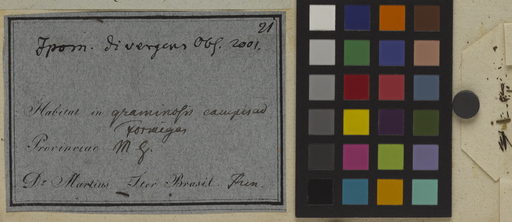 21
Ipom. divergens Obs. 2001.
Habitat in graminosis campis ad
Provinciae M. G.
Dr Martius Iter Brasil.